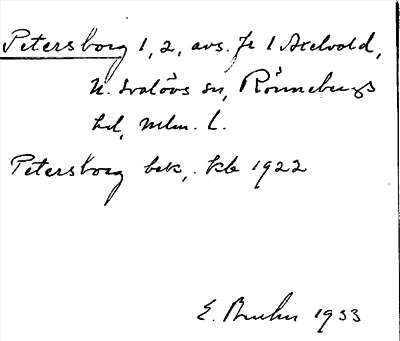 Petersborg 1, 2, avs. fr 1 Axelvold,
N. Svalövs sn, Rönnebergs
hd, Mlm. L.
Petersborg bek, kb 1922
E. Bruhn 1933